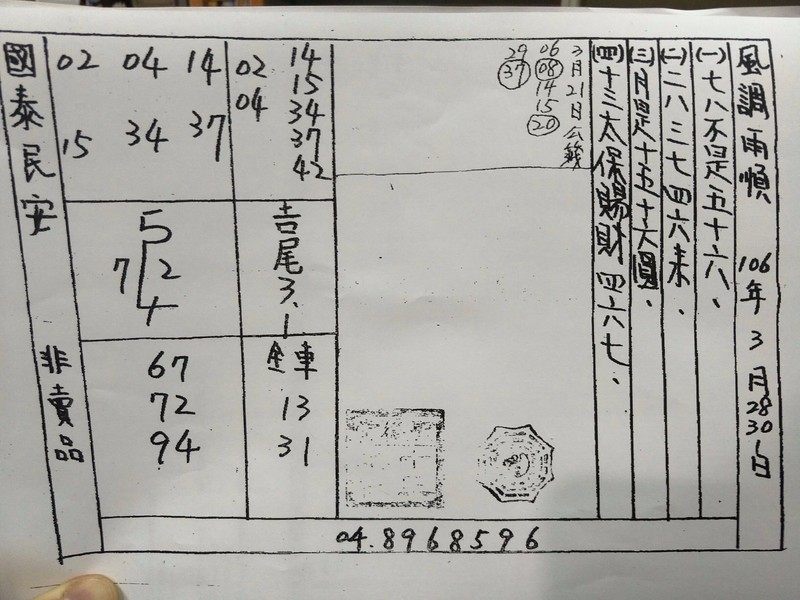 風調雨順 106年3月28 30 日
(一)七八不是五十六、
(二)二八三七四六来、
(三)月是十五十六圓、
(四)十三太保賜財四六七、
3月21日公籤
06 08 14 15 20
29 37
14 15 34 37 42
02 04
吉尾3、1
全車 13 31
14 37
04 34
02 15
5
7 2
4
67
72
94
國泰民安 非賣品
04.8968596